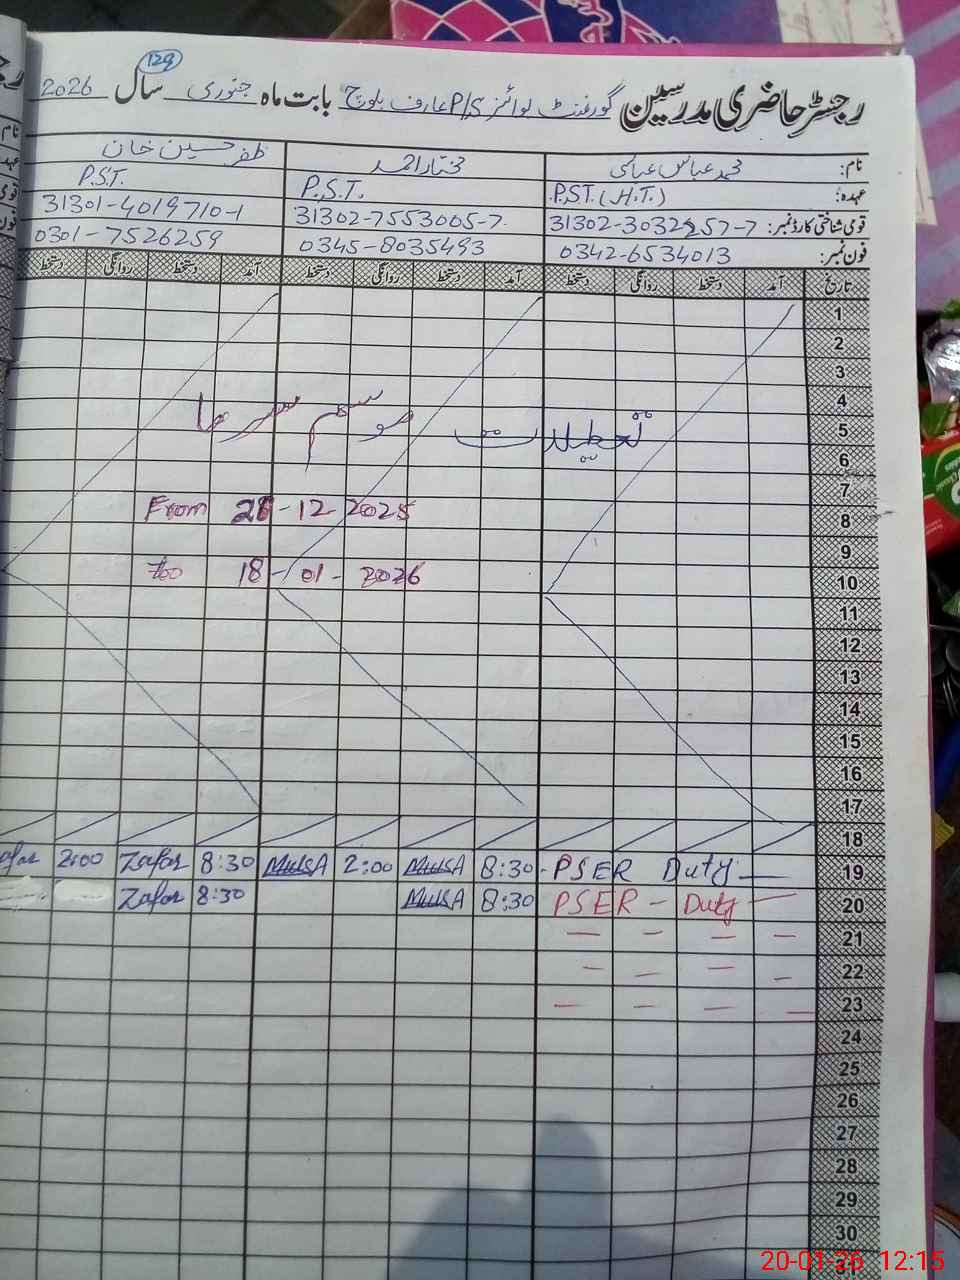 129
رجسٹر حاضری مدرسین گورنمنٹ بوائز P/S عارف بلوچ بابت ماہ جنوری سال 2026
نام: محمد عباس عباسی مختار احمد ظفر حسین خان
عہدہ: P.S.T. (H.T.) P.S.T. P.S.T.
قومی شناختی کارڈ نمبر: 31302-3032257-7 31302-7553005-7 31301-4019710-1
فون نمبر: 0342-6534013 0345-8035493 0301-7526259
تاریخ آمد دستخط روانگی دستخط آمد دستخط روانگی دستخط آمد دستخط روانگی دستخط
1
2
3
4
تعطیلات موسم سرما
5
6
7
From 28-12-2025
8
9
too 18-01-2026
10
11
12
13
14
15
16
17
18
19 PSER Duty 8:30 2:00 8:30 Zafar 2:00 Zafar
20 PSER - Duty 8:30 8:30 Zafar
21
22
23
24
25
26
27
28
29
30
20-01-26 12:15